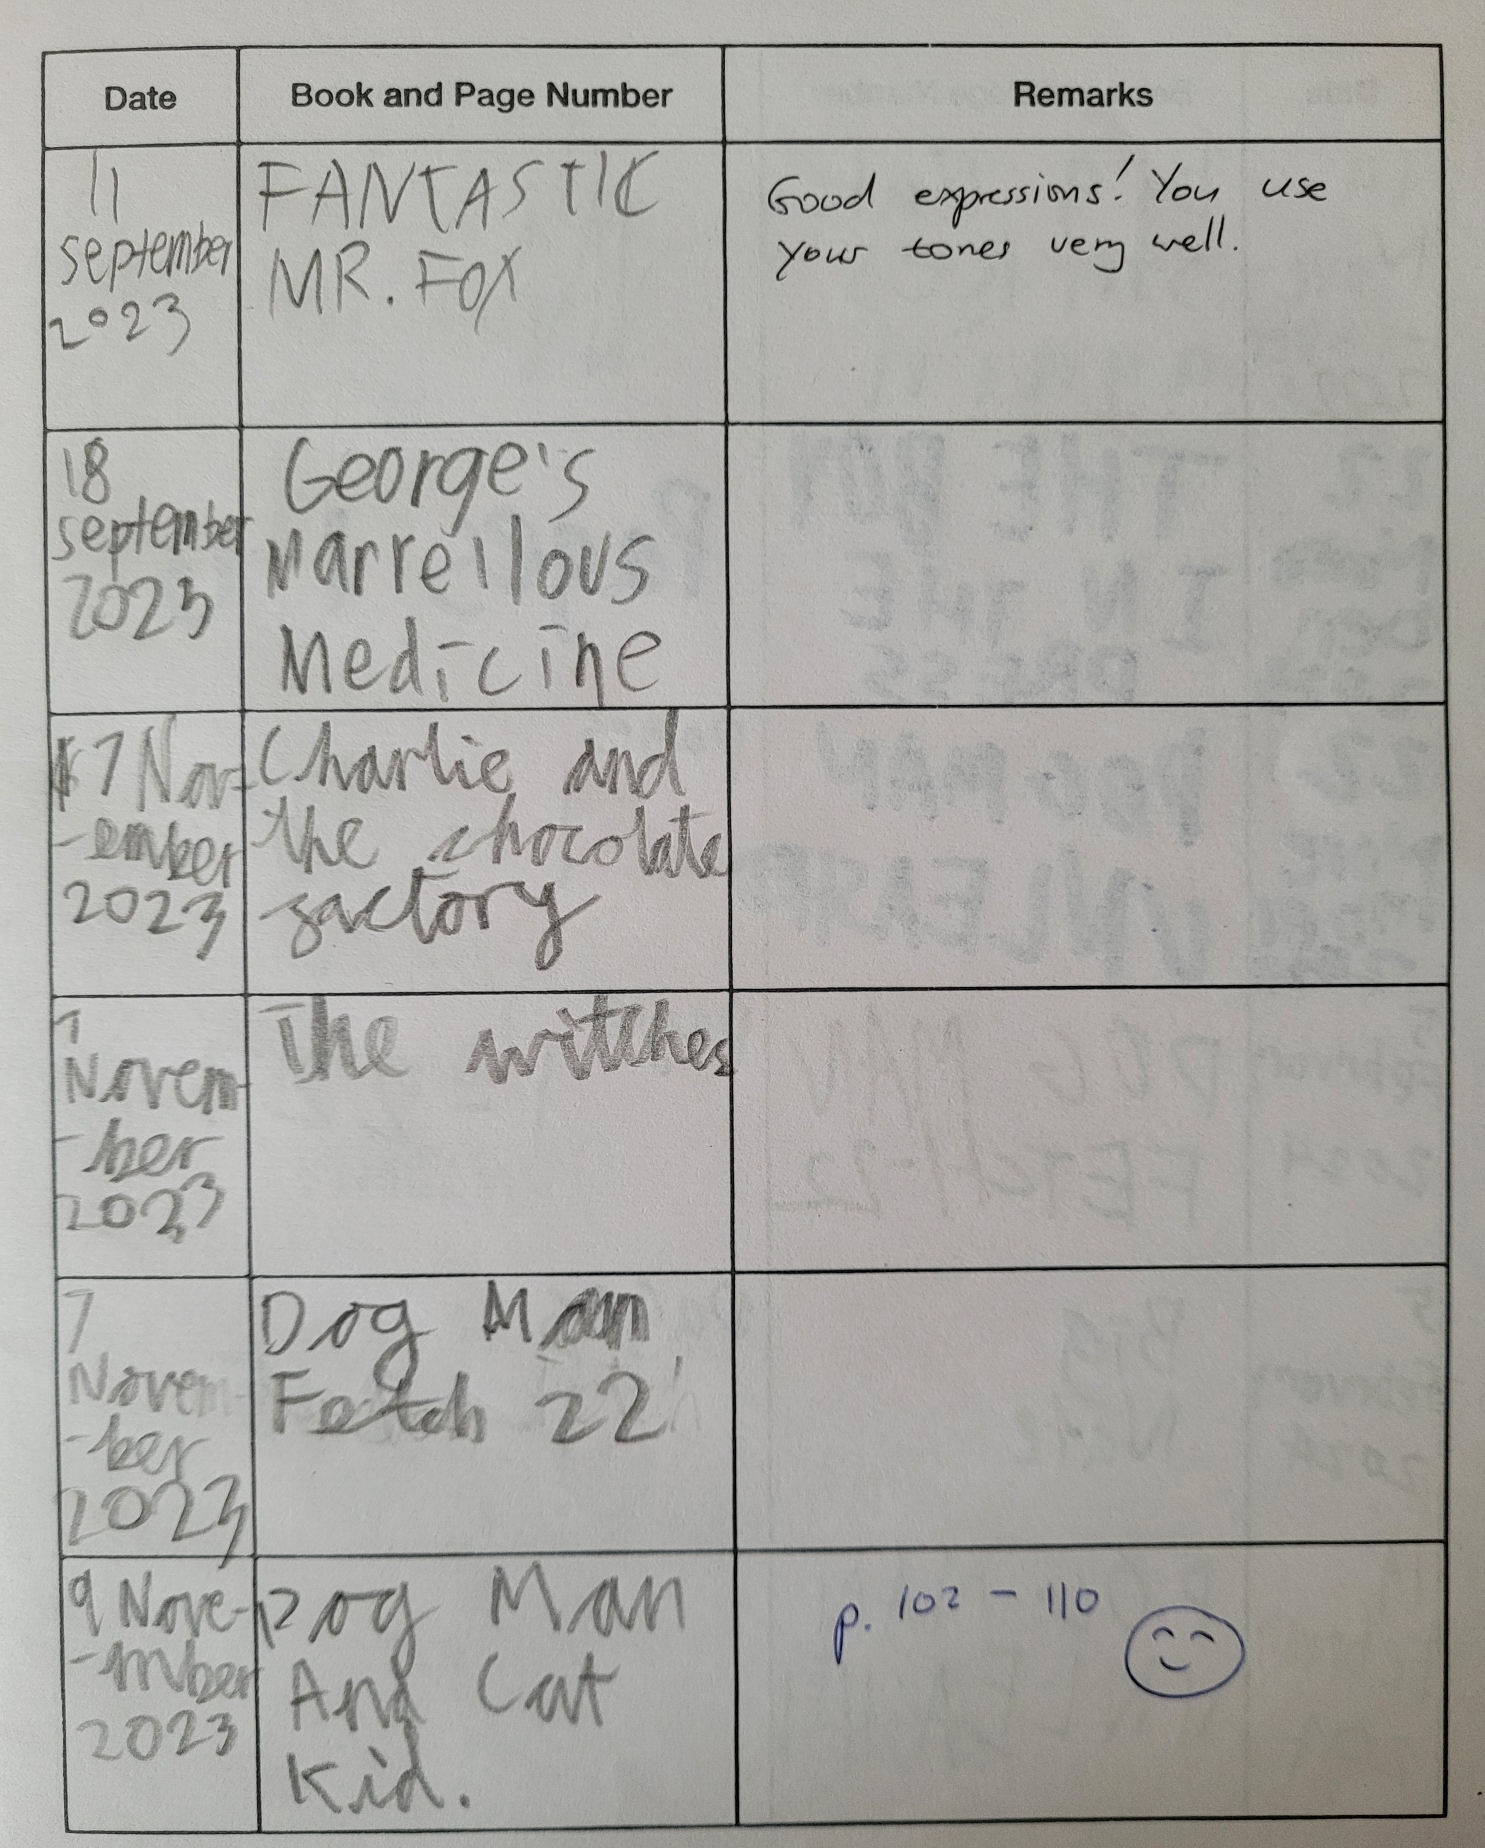 Date Book and Page Number Remarks
11
september
2023
FANTASTIC
MR. FOX
Good expressions! You use
your tones very well.
18
september
2023
George's
Marrellous
Medicine
7 Nov-
-ember
2023
Charlie and
the chocolate
factory
7
Novem-
-ber
2023
The witches
7
Novem-
-ber
2023
Dog Man
Fetch 22
9 Nove-
-mber
2023
Dog Man
And Cat
Kid.
p. 102 - 110